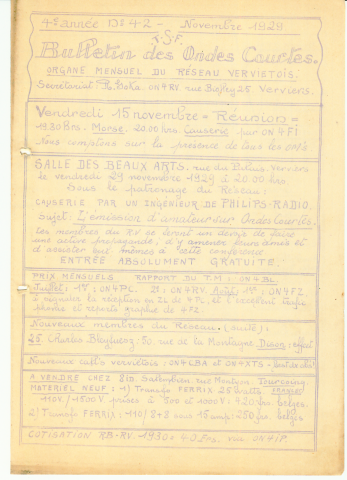 4e année N: 42 - Novembre 1929
T.S.F.
Bulletin des Ondes Courtes.
ORGANE MENSUEL DU RESEAU VERVIETOIS.
Secrétariat ON4RV, rue 25. Verviers.
Vendredi 15 novembre = Réunion =
19.30 hrs. Morse. 20.00 hrs. Causerie par ON4FI
Nous comptons sur la présence de tous les
SALLE DES BEAUX ARTS. rue du Palais. Verviers
le vendredi 29 novembre 1929 à 20.00 hrs
Sous le patronage du Réseau:
CAUSERIE PAR UN INGENIEUR DE PHILIPS-RADIO.
Sujet: L'émission d'amateur sur Ondes Courtes.
Les membres du RV se feront un devoir de faire
une active propagande, d'y amener leurs amis et
d'assister eux mêmes à cette conférence
ENTRÉE ABSOLUMENT GRATUITE.
PRIX MENSUELS RAPPORT DU T.M: ON4BL
Juillet: 1r: ON4PC. 2: ON4RV. Août: 1r: ON4FZ
à signaler la réception en de 4PC, et l'excellent
et reports graphie de 4FZ.
Nouveaux membres du Réseau. (suite):
25. Charles 50, rue de la Montagne Dison:
Nouveaux calls verviétois: ON4LBA et ON4XTS
A VENDRE CHEZ rue Tourcoing
MATERIEL NEUF: 1) Transfo FERRIX 25 watts.
110V/1500V. prises à 500 et 1000V: 420 frs. belges.
2) Transfo FERRIX: 110/8+8 sous 15 amp: 250 frs. belges
COTISATION RB-RV. 1930: 40 frs. via ON4IP.